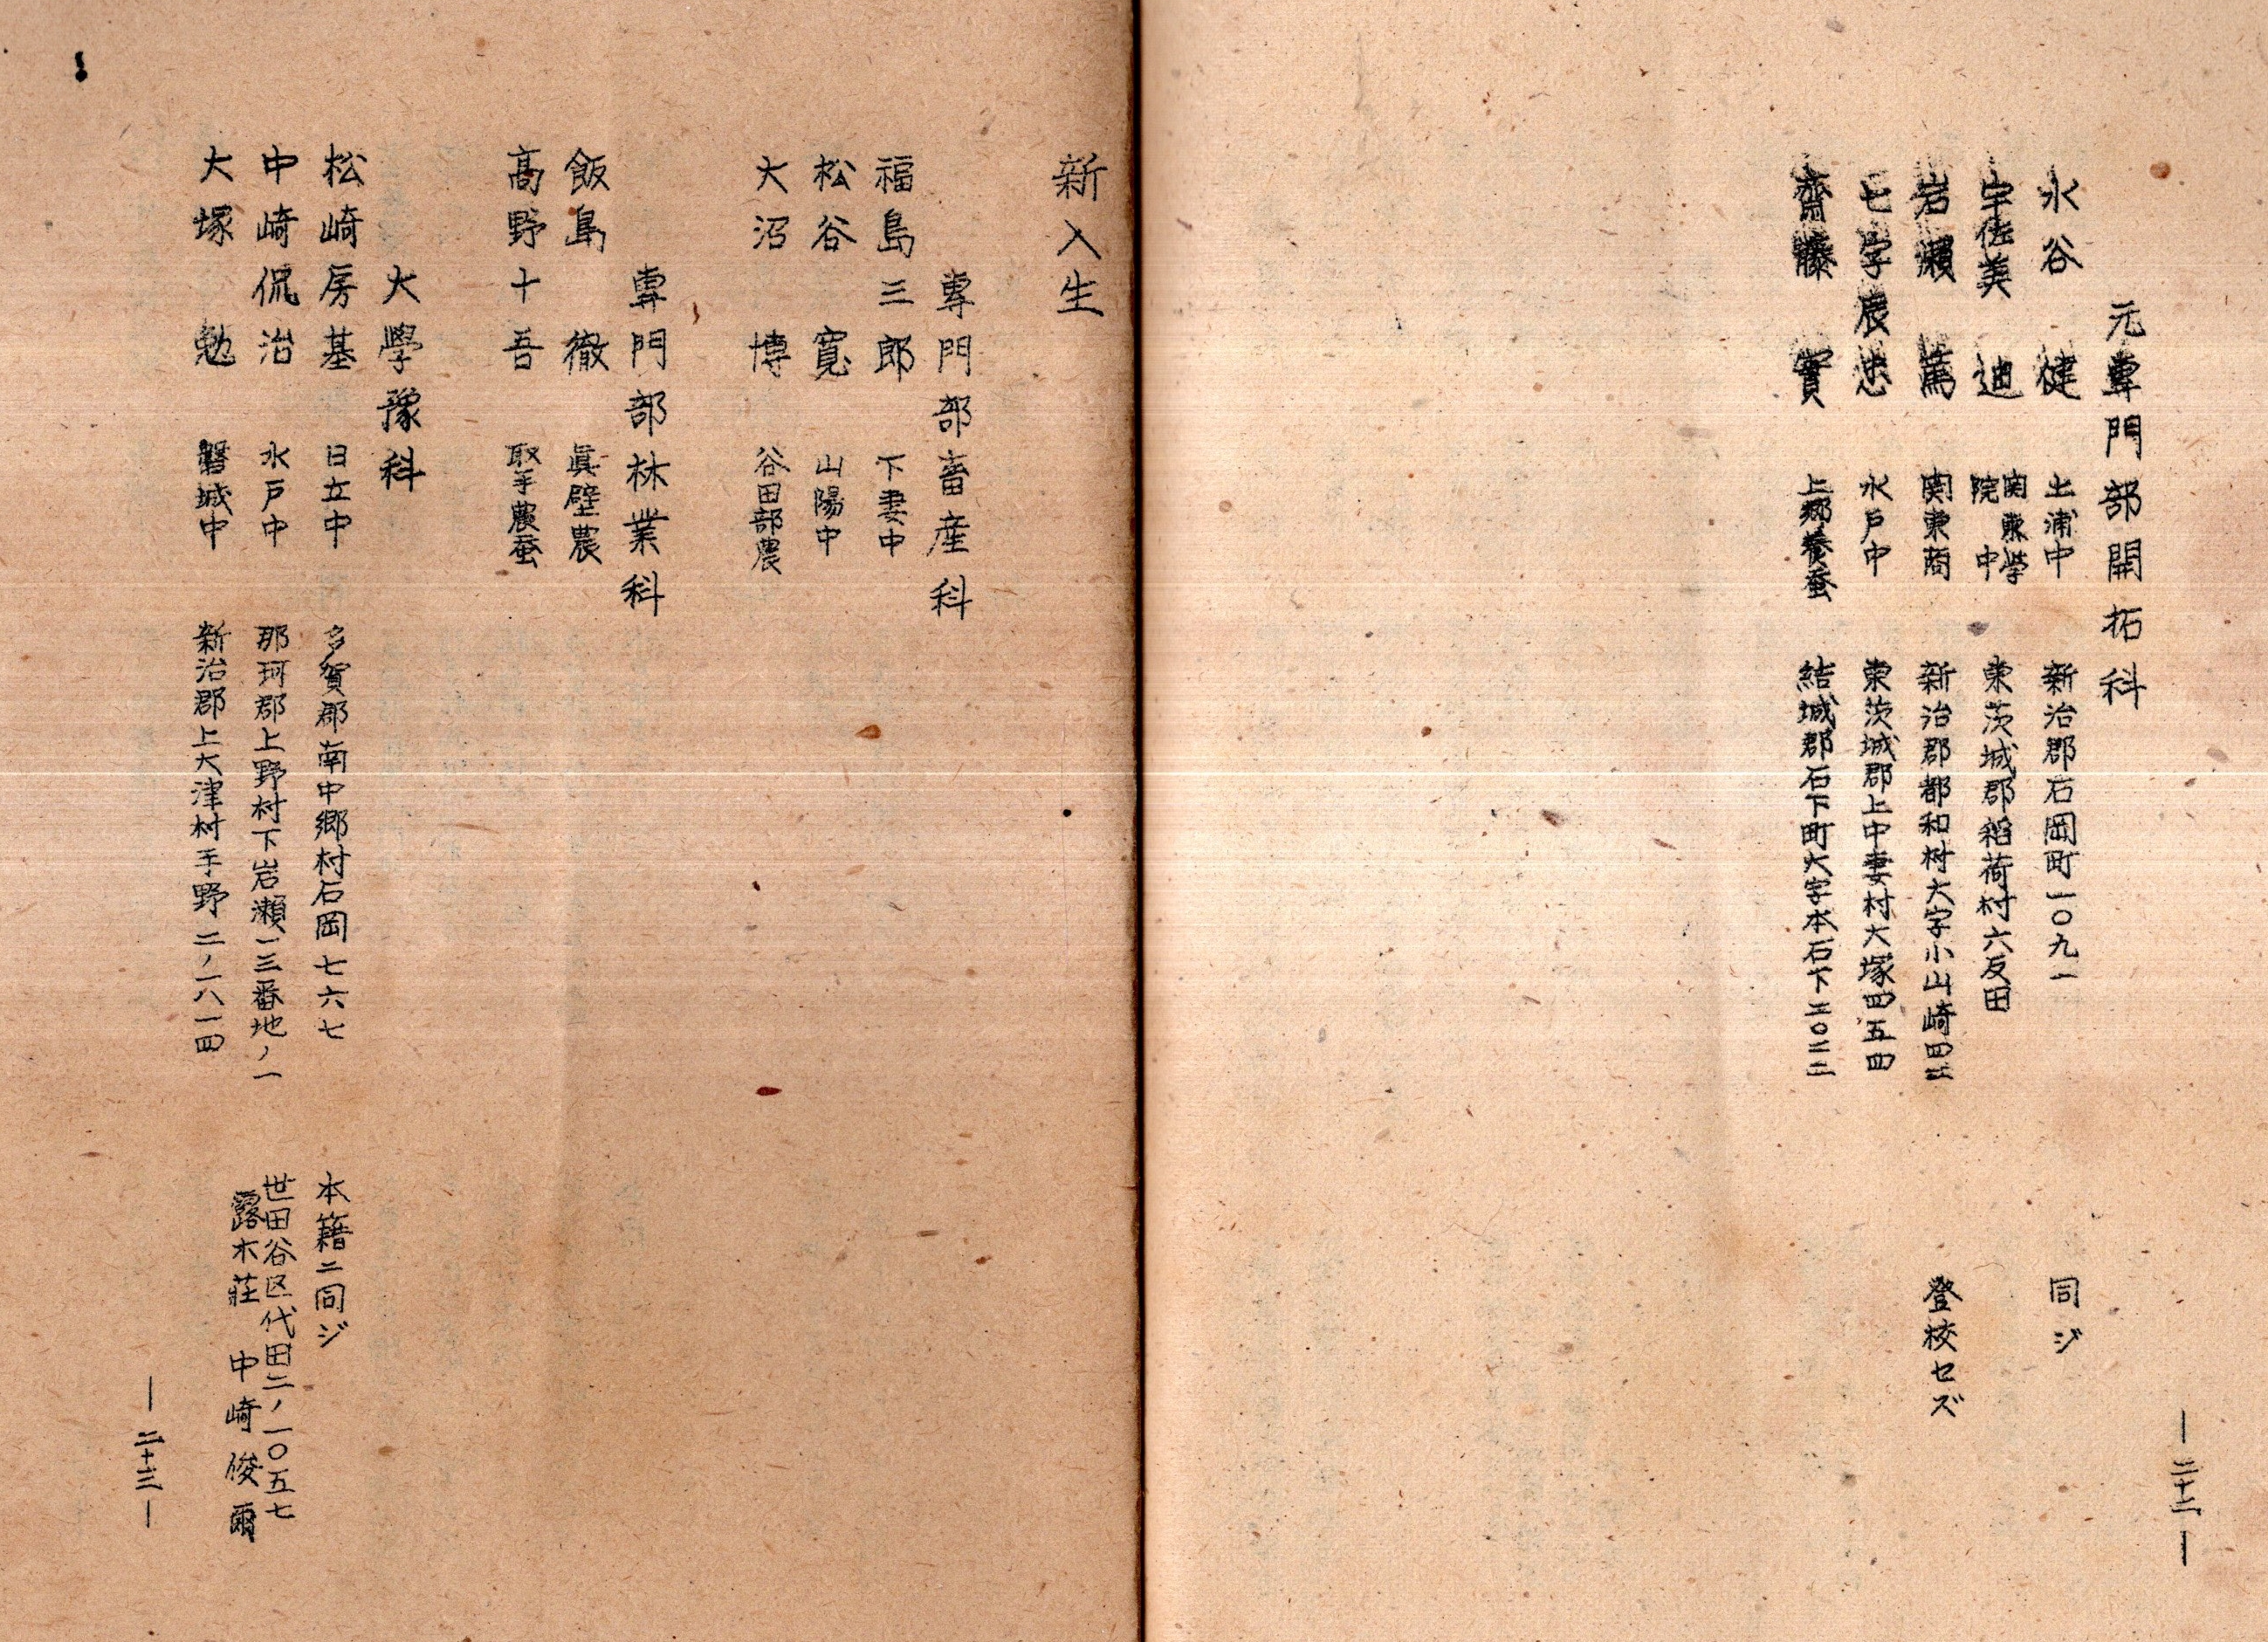 元專門部開拓科
水谷 健 土浦中 新治郡石岡町一〇九一 同ジ
宇佐美 迪 関東學院中 東茨城郡稻荷村六反田
岩瀬 篤 関東商 新治郡都和村大字小山崎四 登校セズ
七字辰忠 水戸中 東茨城郡上中妻村大塚四五四
齋藤 實 上郷養蚕 結城郡石下町大字本石下二〇二二
—二十二—
新入生
專門部畜産科
福島三郎 下妻中
松谷 寛 山陽中
大沼 博 谷田部農
專門部林業科
飯島 徹 眞壁農
高野十吾 取手農蚕
大學豫科
松崎房基 日立中 多賀郡南中郷村石岡七六七 本籍ニ同ジ
中崎侃治 水戸中 那珂郡上野村下岩瀬一三番地ノ一 世田谷区代田二ノ一〇五七
露木莊 中崎俊爾
大塚 勉 磐城中 新治郡上大津村手野二ノ一八一四
—二十三—